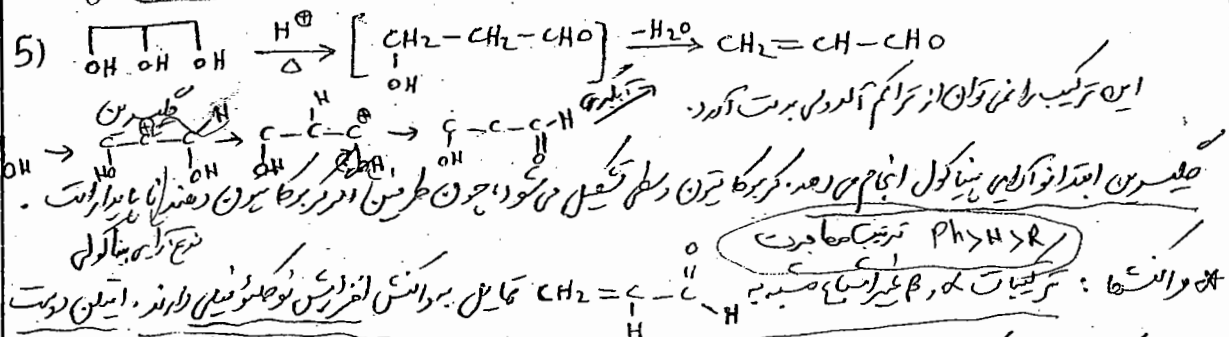 5) OH OH OH H⊕ Δ → [CH2-CH2-CHO OH] -H2O → CH2=CH-CHO
این ترکیب را نمی توان از تراکم آلدولی بدست آورد.
گلیسرین
OH → C-C⊕-C-H HO OH → C-C-C⊕ H OH OH → C-C-C-H OH O آبگیری
گلیسرین ابتدا نوآرایی پیناکول انجام می دهد. کربوکاتیون وسطی تشکیل می شود، چون طرفین اگر کربوکاتیون دهند ناپایدار است.
نوآرایی پیناکولی
ترتیب مهاجرت Ph>H>R
* واکنشها: ترکیبات α,β غیراشباع شبیه به CH2=C-C-H H O تمایل به واکنش افزایش نوکلئوفیلی دارند. اتیلن دوست